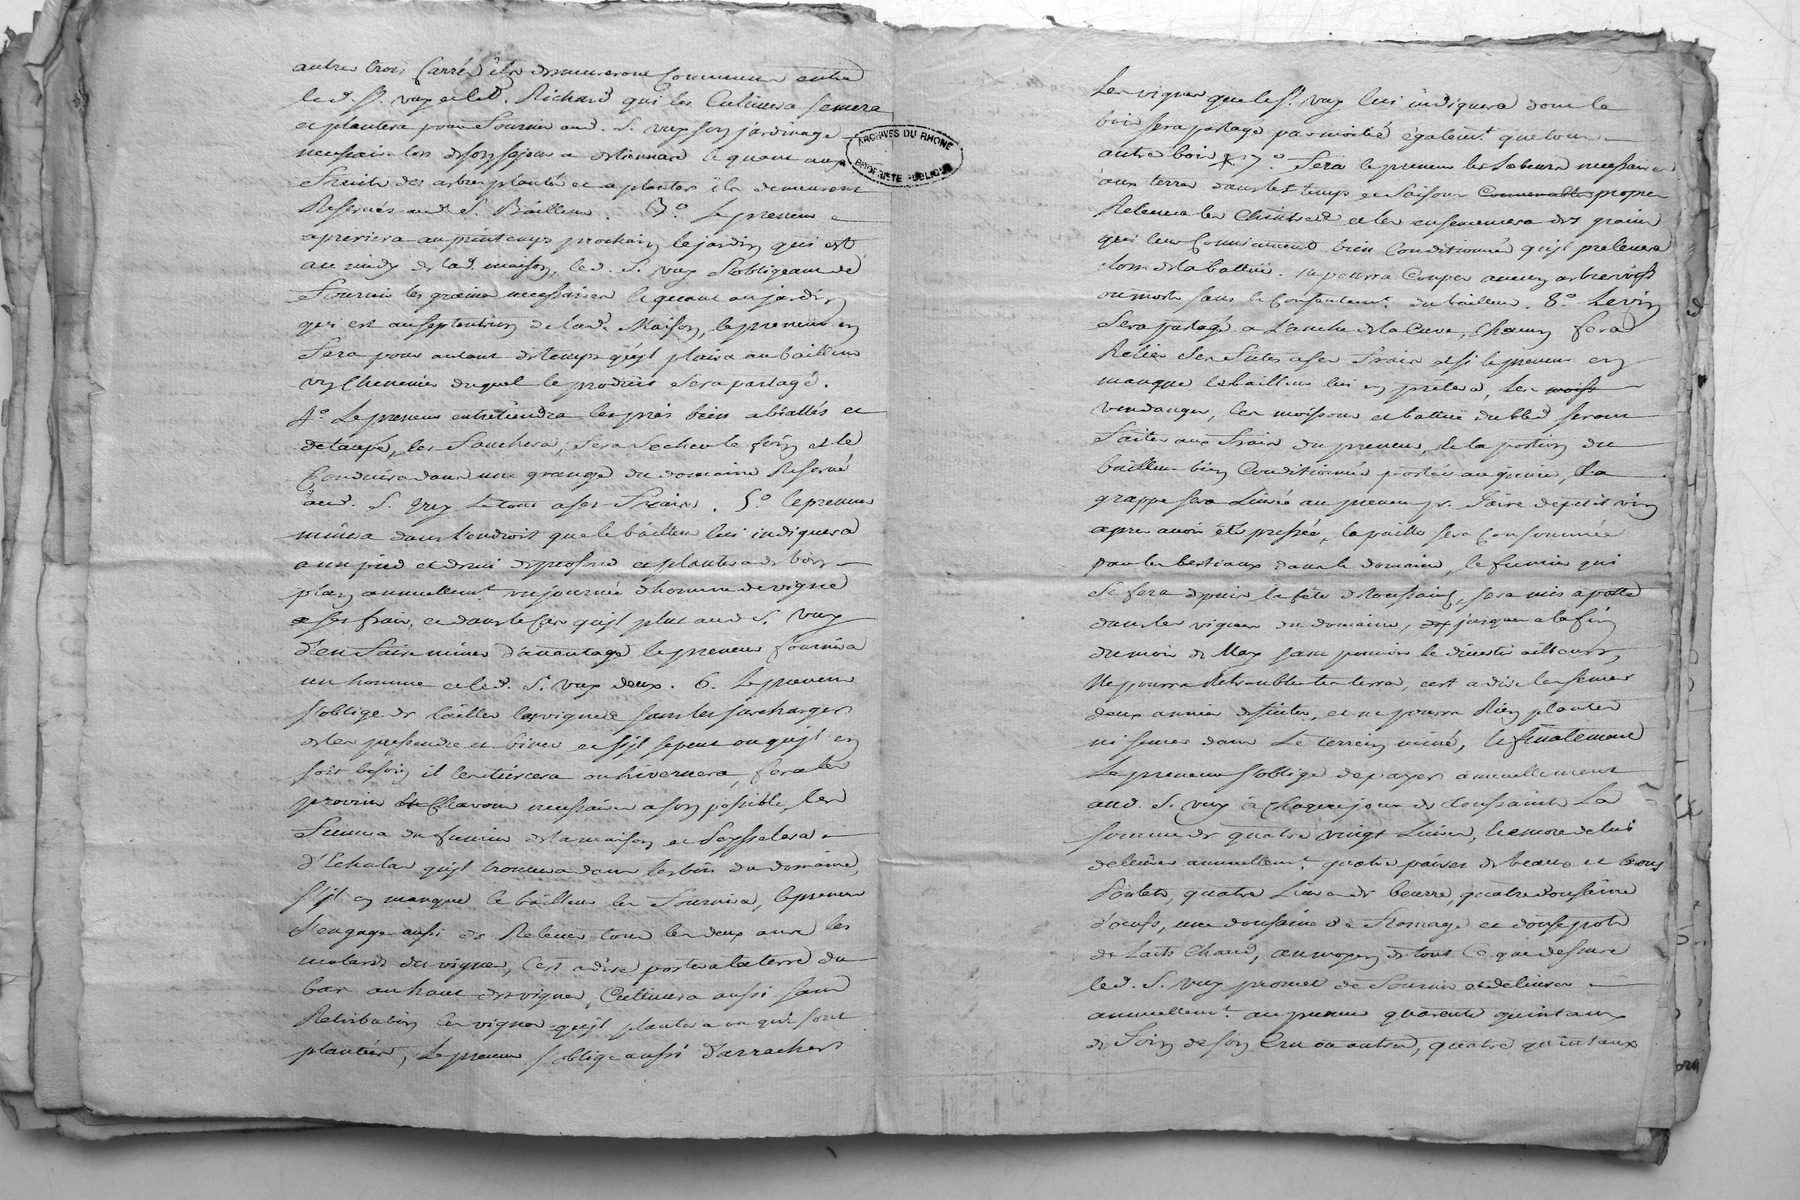 autres trois Carrés ils demeureront Communs entre
led. S. vux et led. Richard qui les Cultivera semera
et plantera pour fournir aud. S. vux son jardinage
necessaire lors de son sejour a et quant aux
fruits des arbres plantés et a planter ils demeurent
Reservés aud. S. Bailleur. 3.° Le preneur
au printemps prochain le jardin qui est
au midy de lad. maison, led. S. vux s'obligeant de
fournir les graines necessaires et quant au jardin
qui est au septentrion de lad. Maison, le preneur en
fera pour autant de temps qu'il plaira au bailleur
un Chenevier duquel le produit sera partagé.
4.° Le preneur entretiendra les prés bien abéallés et
detaupés, les fauchera, fera secher le foin et le
Conduira dans une grange du domaine Reservé
aud. S. vux le tout a ses fraix. 5.° le preneur
minera dans l'endroit que le bailleur lui indiquera
a un pied et demi de profond et plantera de bon
plan annuellem.t un journée d'homme de vigne
a ses frais, et dans le Cas qu'il plut aud. S. vux
d'en faire miner d'avantage le preneur fournira
un homme et led. S. vux deux. 6. Le preneur
s'oblige de tailler les vignes sans les surcharger
de les et biner et s'il se peut ou qu'il en
soit besoin il les tiercera ou hivernera, fera les
provins et Chavons necessaires a son possible, les
fumera du fumier de la maison et
d'Echalas qu'il trouvera dans les bois du domaine,
s'il en manque le bailleur les fournira, le preneur
s'engage aussi de Relever tous les deux ans les
molards des vignes, c'est a dire porter la terre du
bas au haut des vignes, Cultivera aussi sans
Retribution les vignes qu'il plantera ou qui sont
plantées, Le preneur s'oblige aussi d'arracher
Les vignes que le S. vux lui indiquera dont le
bois sera partagé par moitié également que tout
autre bois 7.° Fera le preneur les Labours necessaires
aux terres dans les temps et saisons Convenables propres
Relevera les Chaintres et les ensemencera des grains
qui leur Conviennent bien Conditionnés qu'il prelevera
lors de la battue. Ne pourra Couper aucun arbre vif
ou morts sans le Consentem.t du bailleur. 8.° Le vin
sera partagé a L'anche de la Cuve, Chacun fera
Relier ses futes a ses fraix et si le preneur en
manque le bailleur lui en pretera, Les moiss
vendanges, les moissons et battue du bled seront
faites aux fraix du preneur, et la portion du
bailleur bien Conditionnée portée au grenier, La
grappe sera Livrée au preneur pr. faire de petit vin
apres avoir été pressée, la paille sera Consommée
par les bestiaux dans le domaine, le fumier qui
se fera depuis la fête de toussaint, sera mis a
dans les vignes du domaine, jusques a la fin
du mois de May sans pouvoir le divertir ailleurs,
Ne pourra Retroubler les terres, c'est a dire les semer
deux années de suites, et ne pourra Rien planter
ni semer dans Le terrein miné, Et finalement
Le preneur s'oblige de payer annuellement
aud. S. vux à Chaque jour de toussaints La
somme de quatre vingt Livres, et encore de lui
delivrer annuellem.t quatre paires de beaux et bons
Poulets, quatre Livres de beurre, quatre dousaine
d'oeufs, une dousaine de fromage et douse pots
de Laits Chaud, au moyen de tout Ce que dessus
led. S. vux promet de fournir et delivrer
annuellem.t au preneur quarente quintaux
de foin de son Cru ou autres, quatre quintaux
ARCHIVES DU RHONE
PROPRIETE PUBLIQUE